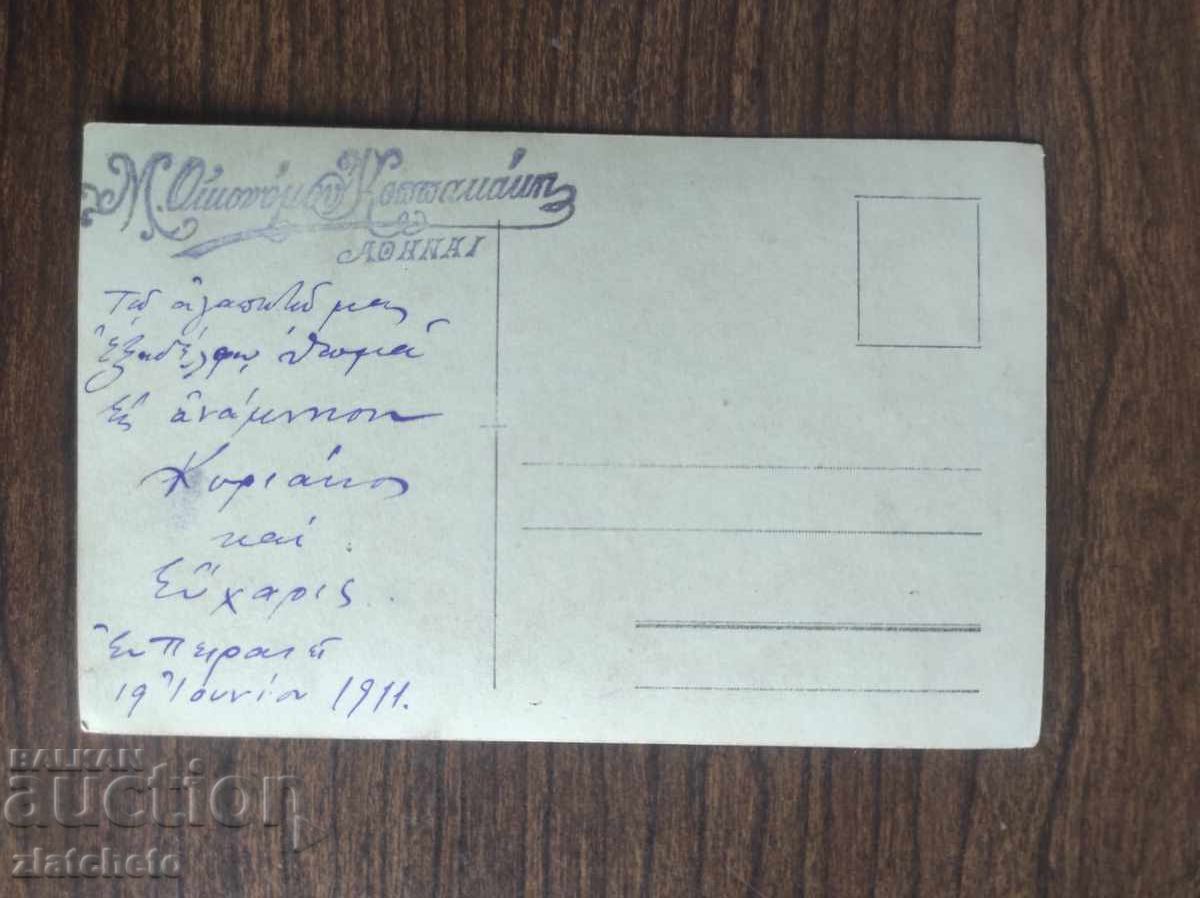 Μ. Οἰκονόμου
ΑΘΗΝΑΙ
Τῷ ἀγαπητῷ μας
Ἐξαδέλφῳ Θωμᾶ
Εἰς ἀνάμνησιν
Κυριάκος
καὶ
Εὔχαρις
Ἐν Πειραιεῖ
19 Ἰουνίου 1911.
BALKAN
auction
zlatcheto